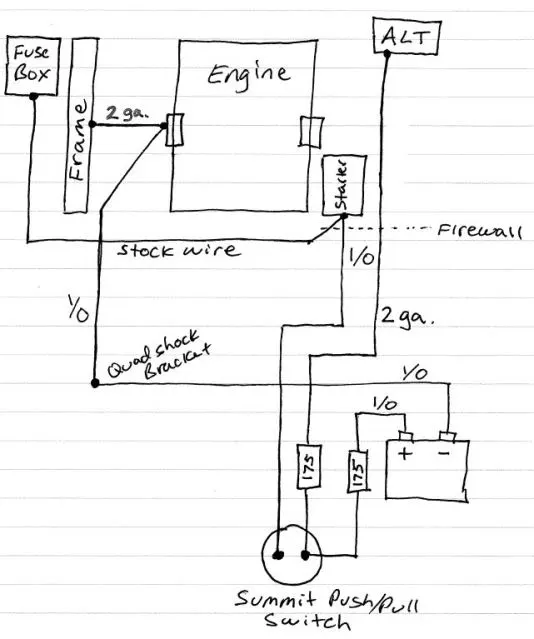 Fuse
Box
ALT
Engine
2 ga.
Frame
Starter
Firewall
Stock wire
1/0
1/0
2 ga.
Quad shock
Bracket
1/0
1/0
+ -
175
175
Summit Push/Pull
Switch